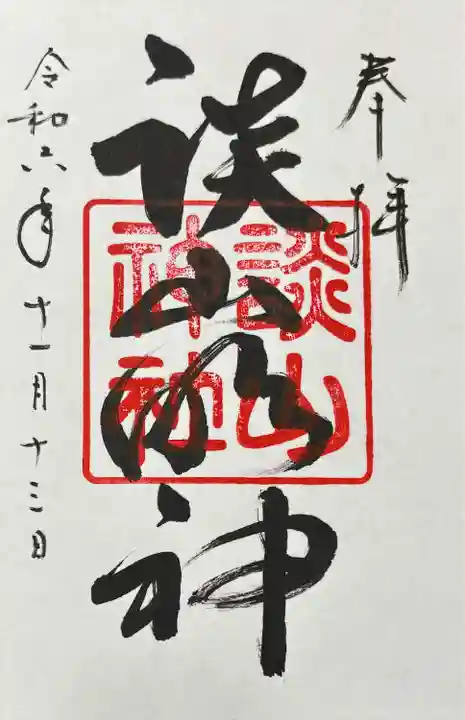 奉拝
談山明神
談山
神社
令和六年十一月十三日